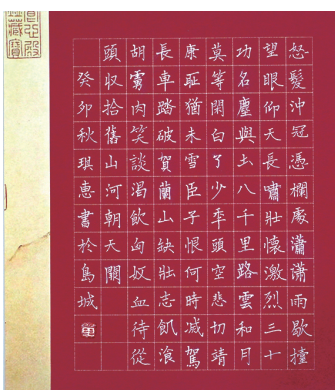 怒髮沖冠憑欄處瀟瀟雨歇擡
望眼仰天長嘯壯懷激烈三十
功名塵與土八千里路雲和月
莫等閑白了少秊頭空悲切靖
康恥猶未雪臣子恨何時滅駕
長車踏破賀蘭山缺壯志飢湌
胡虜肉笑談渴飲匈奴血待從
頭収拾舊山河朝天闕
癸卯秋琪惠書於島城